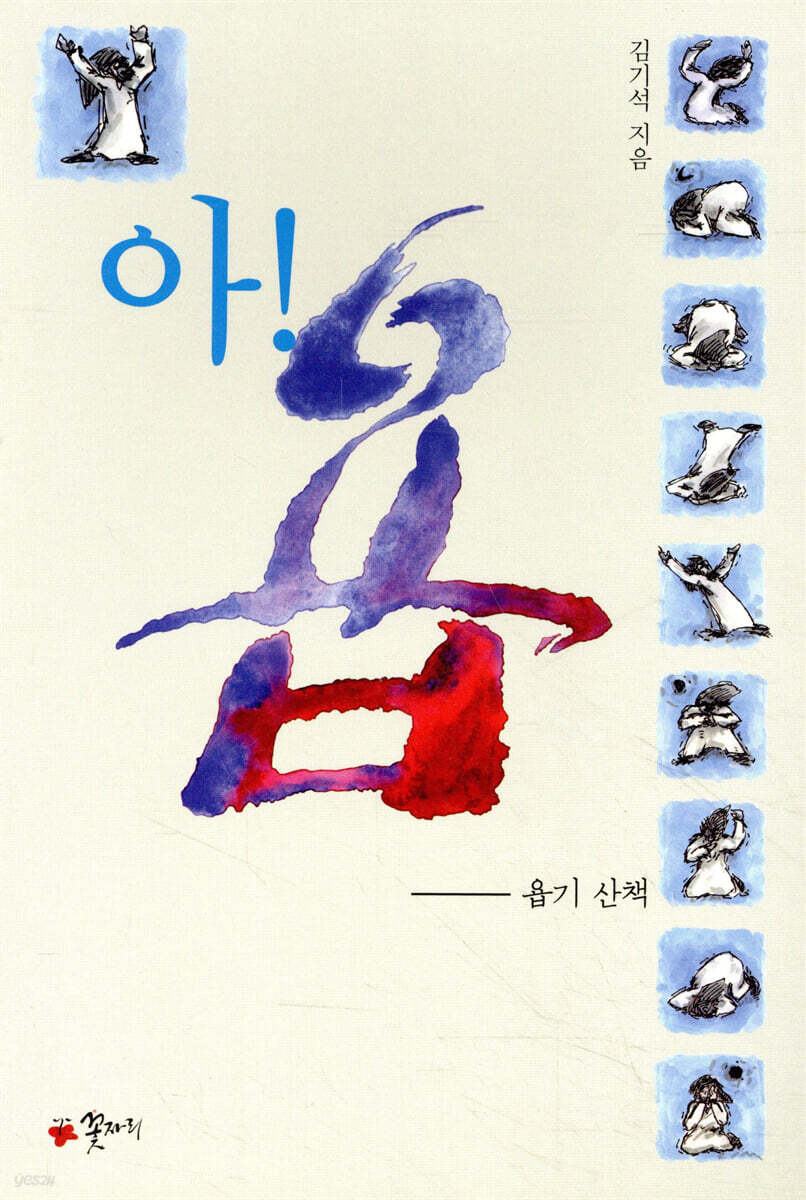 김기석 지음
아!
욥
욥기 산책
꽃자리
yes24